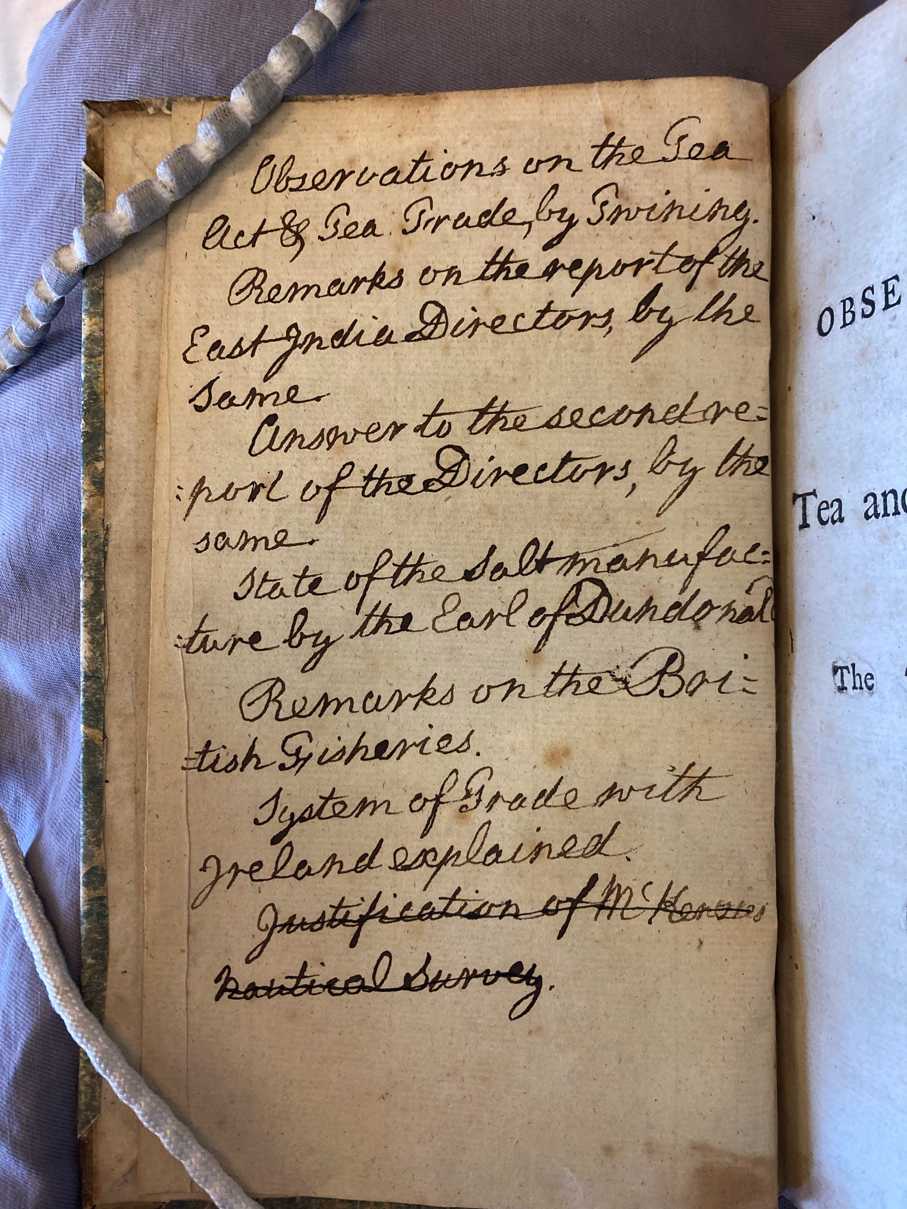 Observations on the Tea
Act & Tea Trade, by Twining.
Remarks on the report of the
East India Directors, by the
same.
Answer to the second re=
=port of the Directors, by the
same.
State of the Salt manufac=
=ture by the Earl of Dundonald
Remarks on the Bri=
=tish Fisheries.
System of Trade with
Ireland explained.
Justification of McKenzies
nautical Survey.
OBSE
Tea and
The